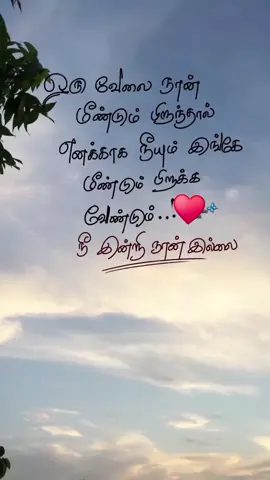 ஒரு வேலை நான்
மீண்டும் பிறந்தால்
எனக்காக நீயும் இங்கே
மீண்டும் பிறக்க
வேண்டும்...!
நீ இன்றி நான் இல்லை